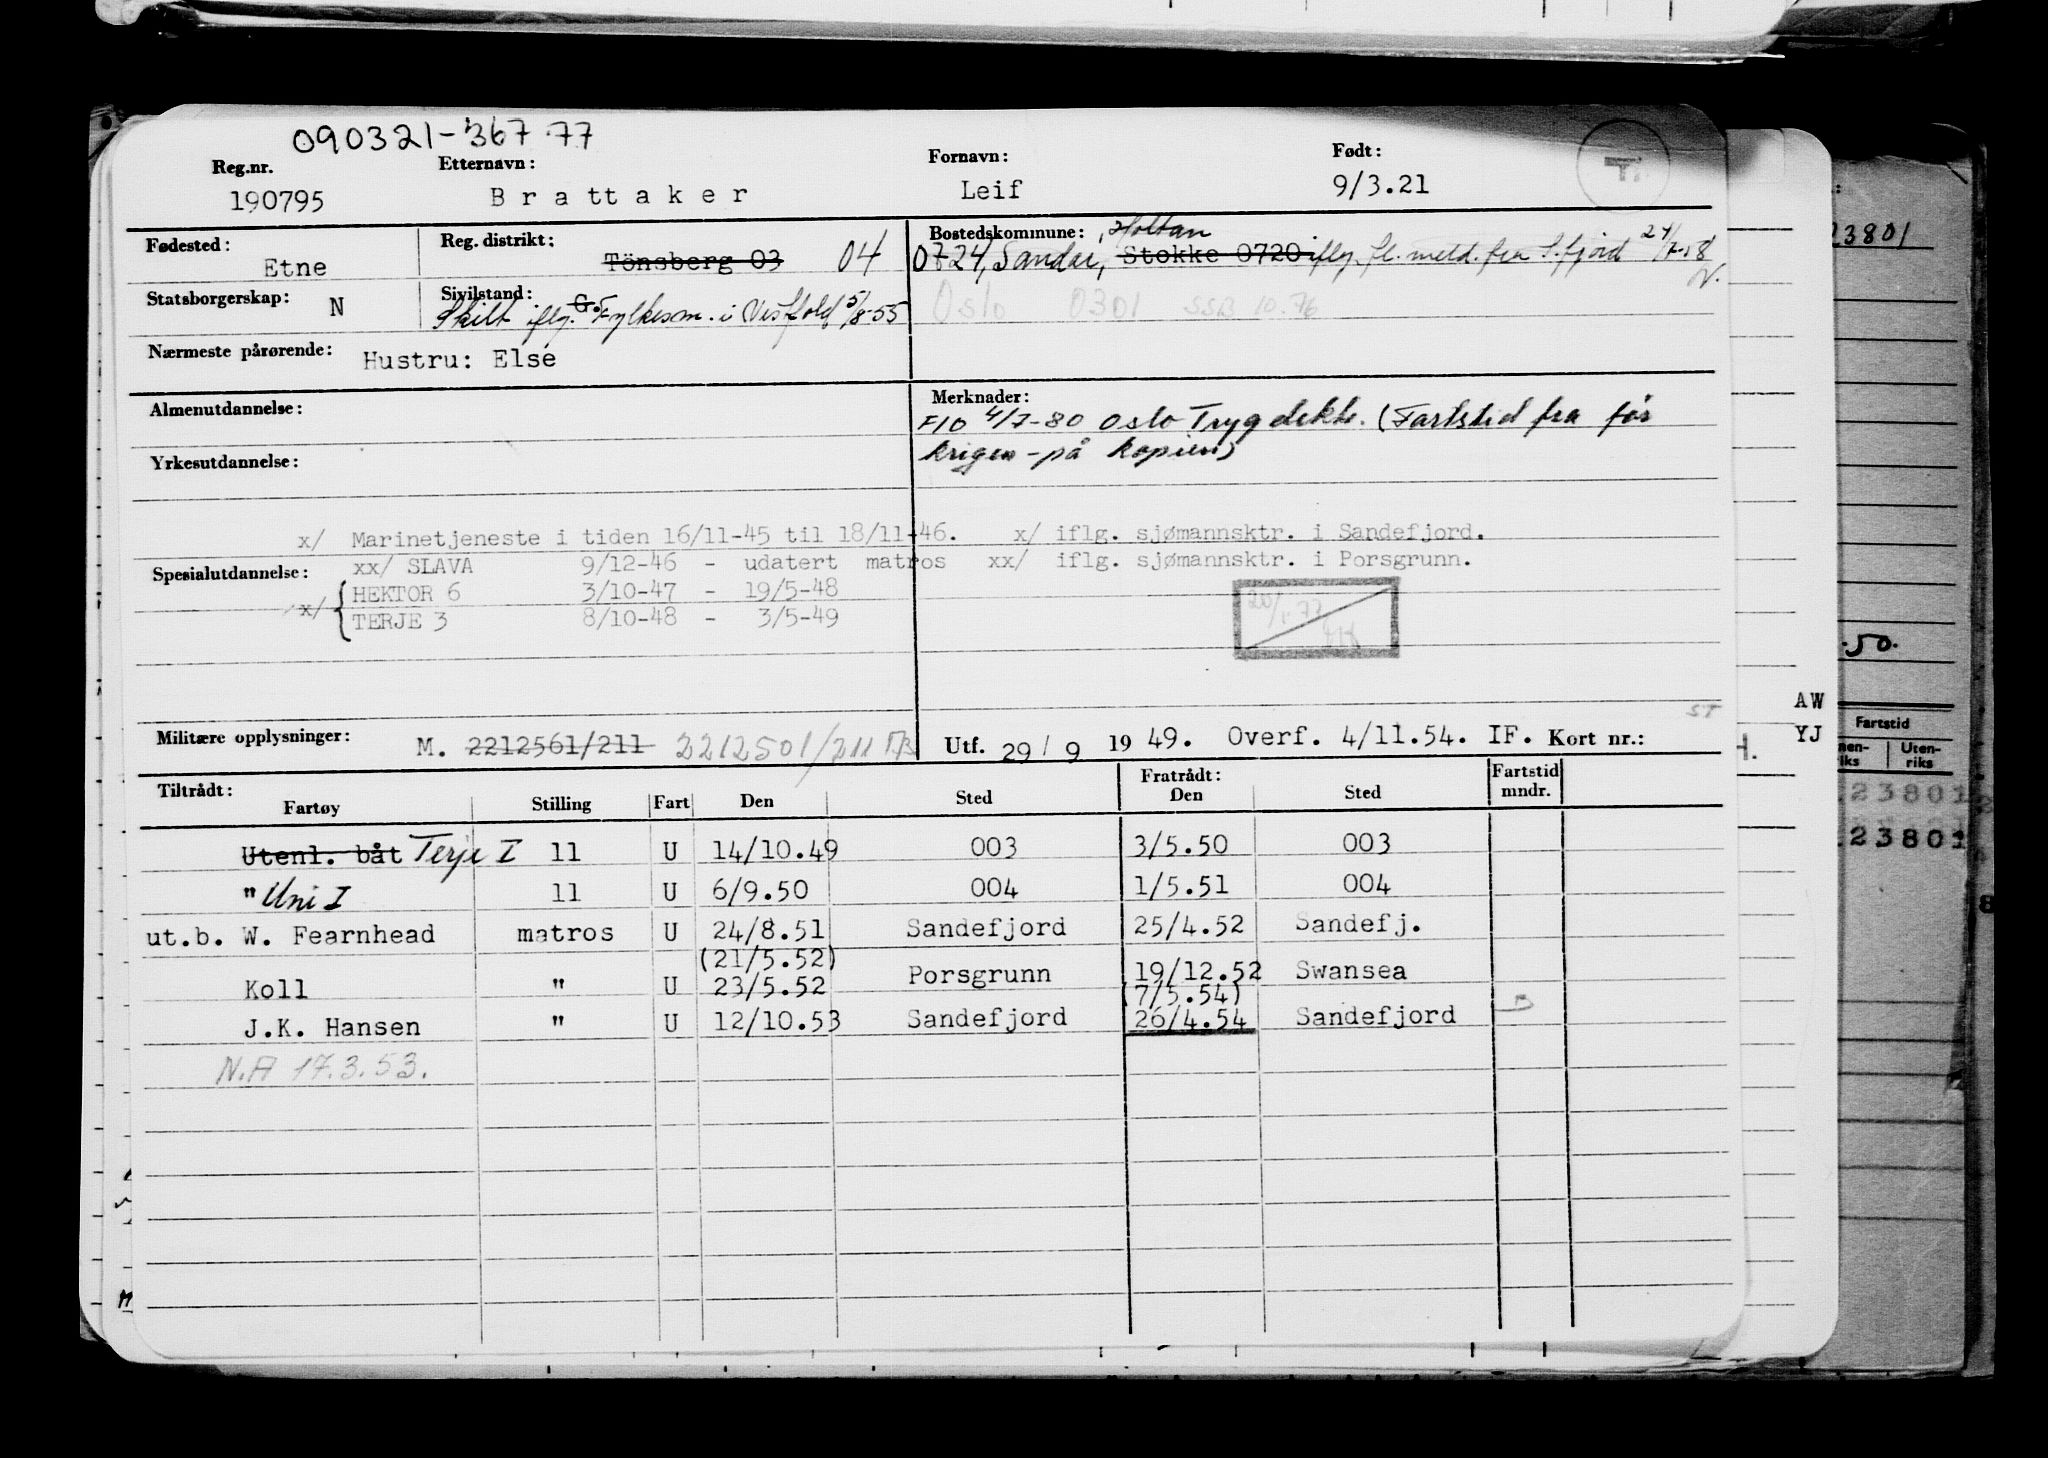 090321-367 77
Reg.nr. Etternavn: Fornavn: Født:
190795 Brattaker Leif 9/3.21
Fødested: Reg. distrikt: Bostedskommune: Holtan
Etne Tönsberg 03 04 0724, Sandar, Stokke 0720 iflg. fl. meld. fra S.fjord
Statsborgerskap: N Sivilstand: G. Skilt iflg. Fylkesm. i Vestfold 5/8-55 Oslo 0301 SSB 10.76
Nærmeste pårørende: Hustru: Else
Almenutdannelse: Merknader:
F10 4/7-80 Oslo Trygdektr. (Fartstid fra før
Yrkesutdannelse: krigen - på kopien)
x/ Marinetjeneste i tiden 16/11-45 til 18/11-46. x/ iflg. sjømannsktr. i Sandefjord.
Spesialutdannelse: xx/ SLAVA 9/12-46 - udatert matros xx/ iflg. sjømannsktr. i Porsgrunn.
x/ { HEKTOR 6 3/10-47 - 19/5-48
TERJE 3 8/10-48 - 3/5-49
ST
Militære opplysninger: M. 2212561/211 2212501/211 Utf. 29/9 1949. Overf. 4/11.54. IF. Kort nr.:
Tiltrådt: Fratrådt: Fartstid
Fartøy Stilling Fart Den Sted Den Sted mndr.
Utenl. båt Terje I 11 U 14/10.49 003 3/5.50 003
" Uni I 11 U 6/9.50 004 1/5.51 004
ut.b. W. Fearnhead matros U 24/8.51 Sandefjord 25/4.52 Sandefj.
(21/5.52)
Koll " U 23/5.52 Porsgrunn 19/12.52 Swansea
(7/5.54)
J.K. Hansen " U 12/10.53 Sandefjord 26/4.54 Sandefjord
N.A 17.3.53.
23801
.50.
AW
YJ
Fartstid
Uten-
riks
23801
23801